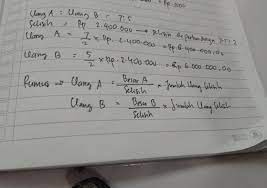 Rp.
Uang A : Uang B = 7:5
Selisih = Rp 2.400.000 → Selisih perbandingan 7-5=2
Uang A = 7/2 x Rp. 2.400.000 = Rp 8.400.000,00
Uang B = 5/2 x Rp. 2.400.000 = Rp 6.000.000,00
Rumus => Uang A = Besar A / Selisih x Jumlah Uang Selisih
Uang B = Besar B / Selisih x Jumlah Uang Selisih